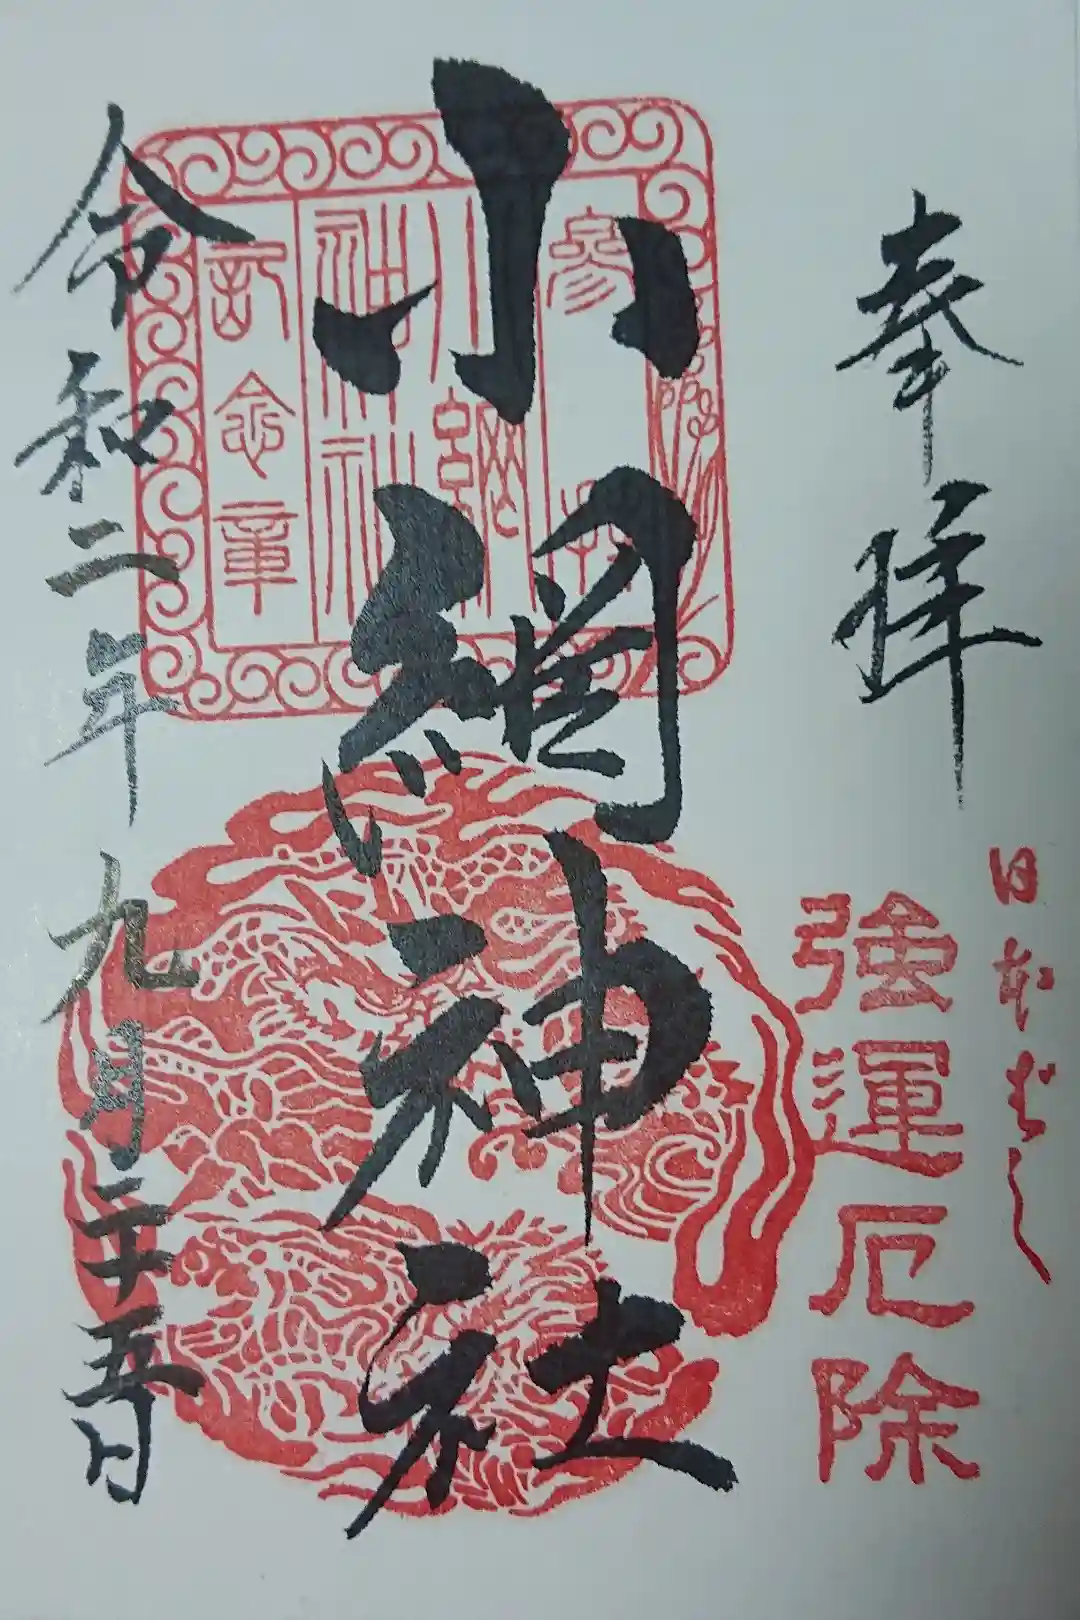 奉拝
日本ばし
強運厄除
小網神社
参拝
小網
神社
記念章
令和二年九月二十五日